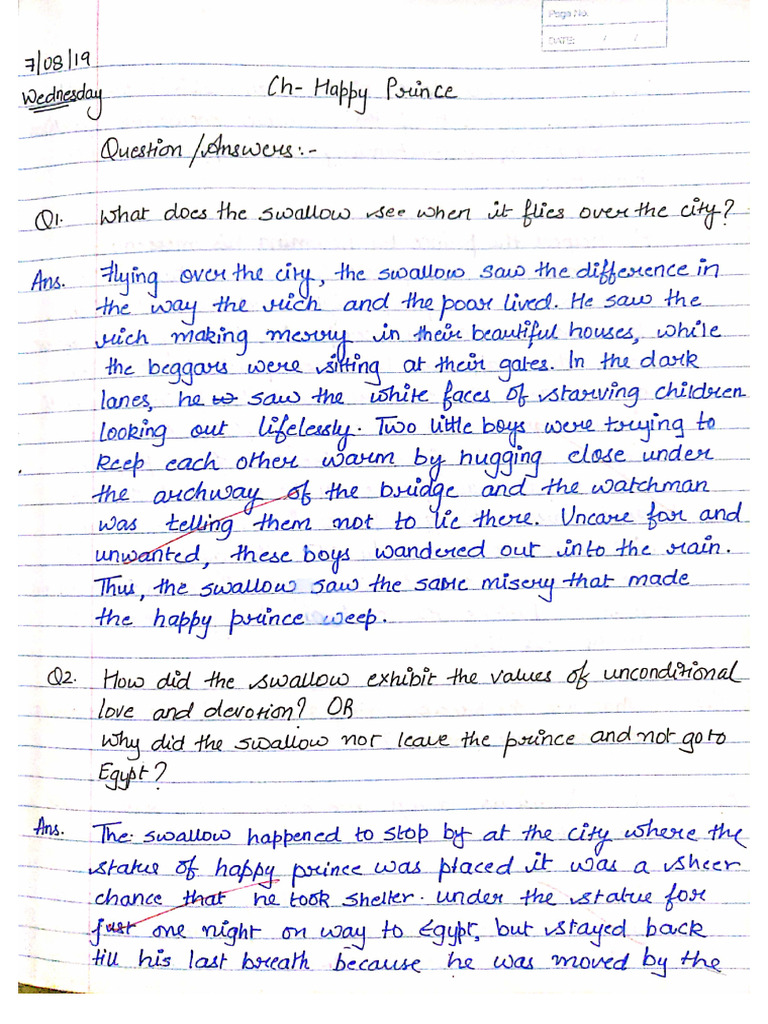 Page No.
DATE: / /
7/08/19
Wednesday
Ch- Happy Prince
Question/Answers:-
Q1. What does the swallow see when it flies over the city?
Ans. Flying over the city, the swallow saw the difference in
the way the rich and the poor lived. He saw the
rich making merry in their beautiful houses, while
the beggars were sitting at their gates. In the dark
lanes, he saw the white faces of starving children
looking out lifelessly. Two little boys were trying to
keep each other warm by hugging close under
the archway of the bridge and the watchman
was telling them not to lie there. Uncare for and
unwanted, these boys wandered out into the rain.
Thus, the swallow saw the same misery that made
the happy prince weep.
Q2. How did the swallow exhibit the values of unconditional
love and devotion? OR
Why did the swallow not leave the prince and not go to
Egypt?
Ans. The swallow happened to stop by at the city where the
statue of happy prince was placed it was a sheer
chance that he took shelter. under the statue for
just one night on way to Egypt, but stayed back
till his last breath because he was moved by the